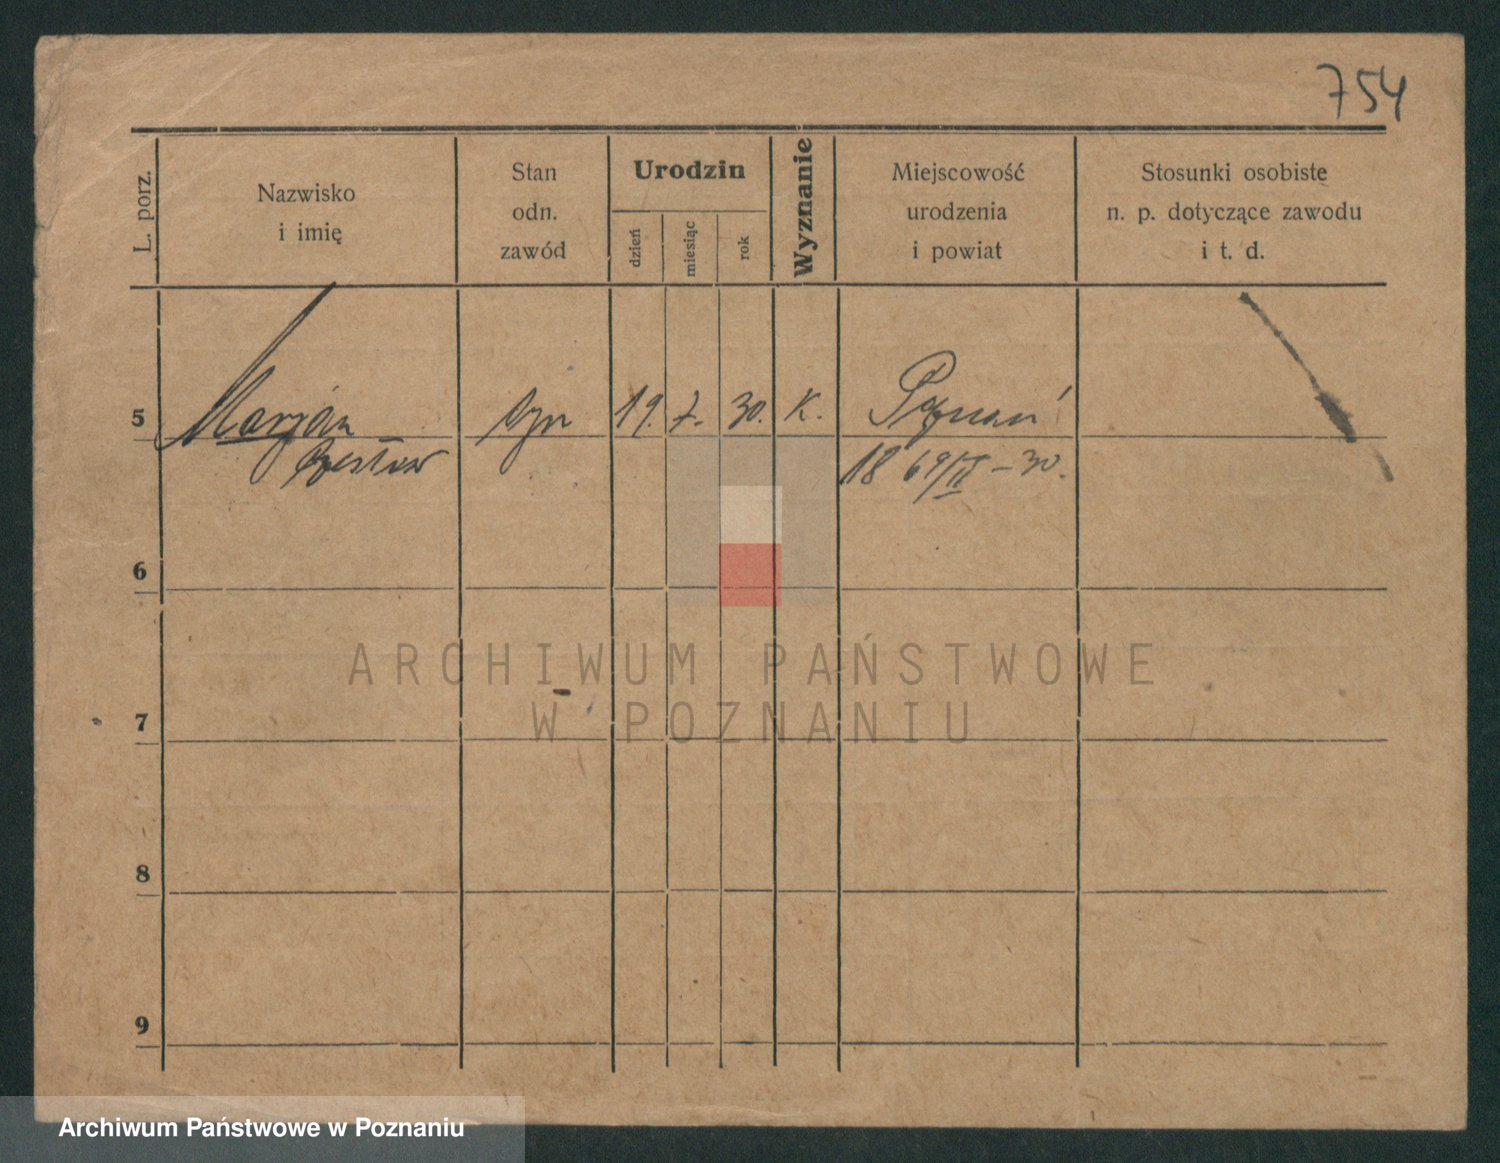 754
L. porz.
Nazwisko
i imię
Stan
odn.
zawód
Urodzin
dzień
miesiąc
rok
Wyznanie
Miejscowość
urodzenia
i powiat
Stosunki osobiste
n. p. dotyczące zawodu
i t. d.
5 Marjan syn 19. 7. 30. K. Poznań
18
6
7
8
9
ARCHIWUM PAŃSTWOWE
W POZNANIU
Archiwum Państwowe w Poznaniu